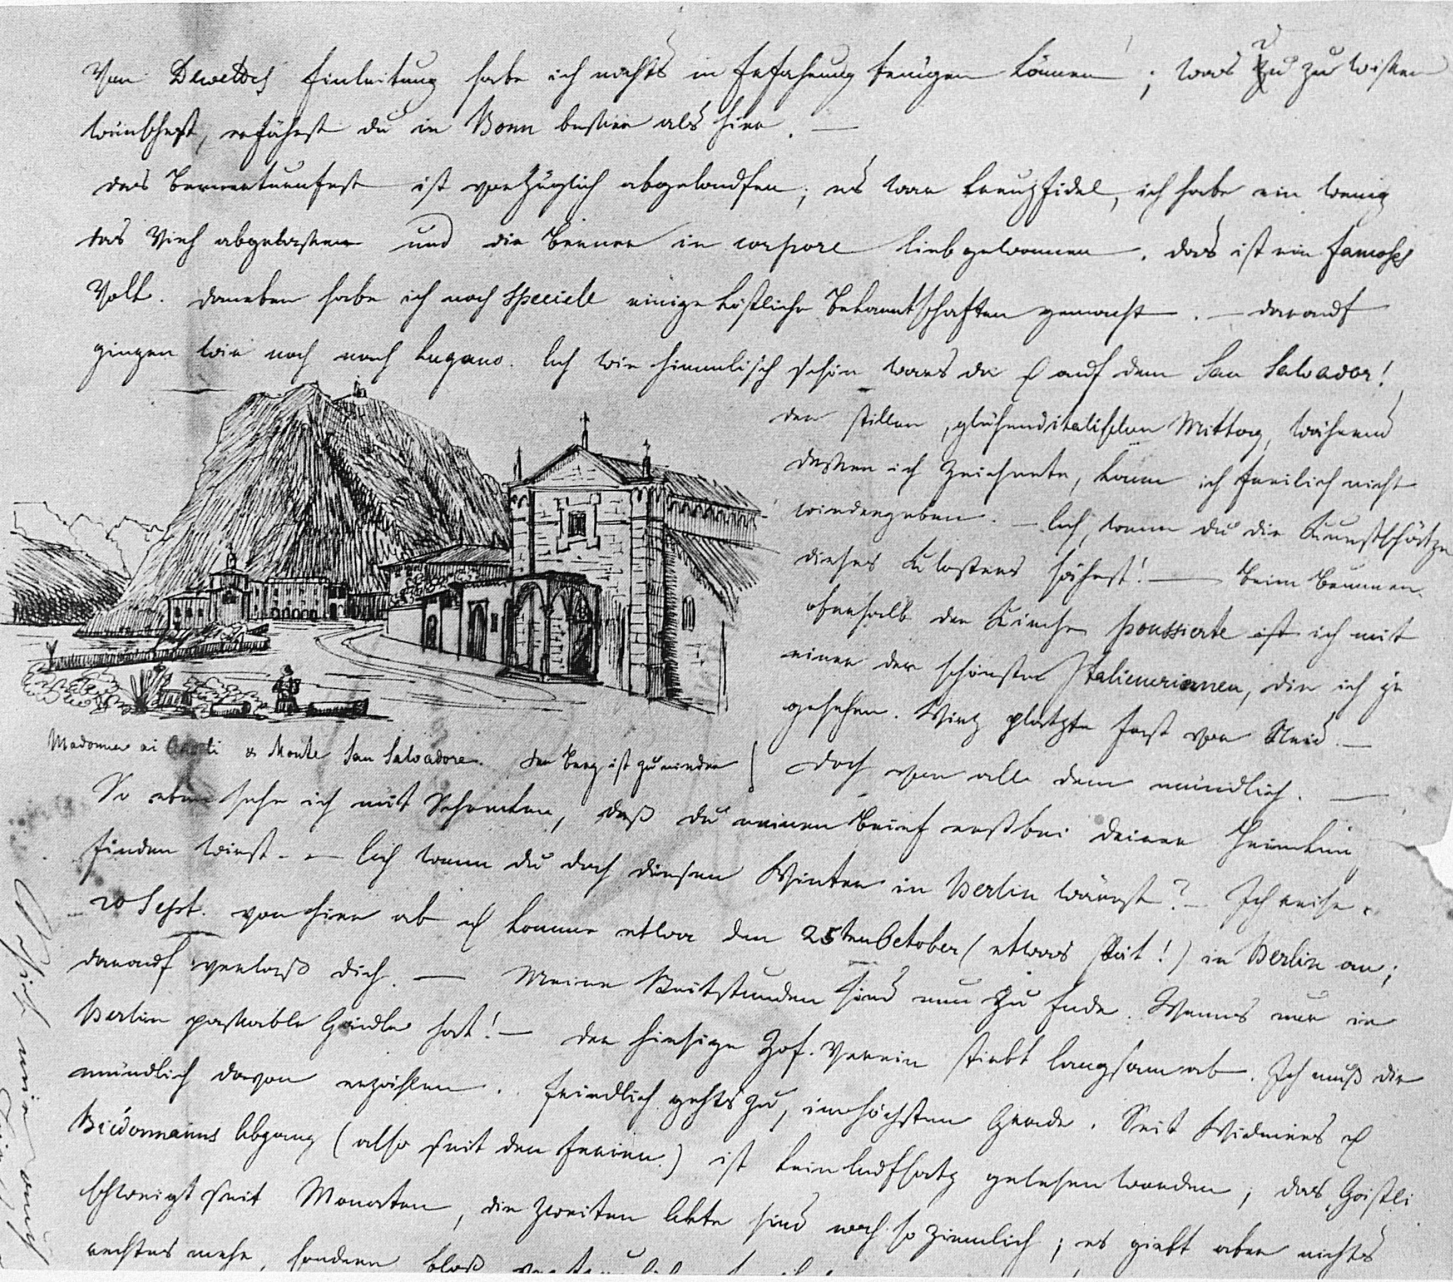 Von Dewettes Einleitung habe ich nichts in Erfahrung bringen können; was du zu wissen
wünschest, erfährst du in Bonn besser als hier. —
Das Bernerturnfest ist vorzüglich abgelaufen; es war kreuzfidel, ich habe ein wenig
das Vieh abgelassen und die Berner in corpore liebgewonnen. Das ist ein famoses
Volk. Daneben habe ich noch speciell einige köstliche Bekanntschaften gemacht. — Darauf
gingen wir noch nach Lugano. Ach wie himmlisch schön wars da & auf dem San Salvador!
Den stillen, glühenditalischen Mittag, während
dessen ich zeichnete, kann ich freilich nicht
wiedergeben. — Ach, wenn du die Kunstschätze
dieses Klosters sähest! — Beim Brunnen
oberhalb der Kirche poussierte ich mit
einer der schönsten Italienerinnen, die ich je
gesehen. Wirz platzte fast vor Neid. —
Madonna ai & Monte San Salvadore. Der Berg ist zu nieder
Doch von alle dem mündlich. —
So eben sehe ich mit Schrecken, daß du meinen Brief erst bei deiner Heimkunft
finden wirst. — Ach wenn du doch diesen Winter in Berlin wärest? — Ich reise
20 Sept. von hier ab & komme etwa den 25ten October (etwas spät!) in Berlin an;
darauf verlaß dich. — Meine Reitstunden sind nun zu Ende. Wenns nur in
Berlin passable Gäule hat! — Der hiesige Zof. Verein stirbt langsam ab. Ich muß dir
mündlich davon erzählen. Friedlich gehts zu, im höchsten Grade. Seit Widmers &
Biedermanns Abgang (also seit den Ferien) ist kein Aufsatz gelesen worden; das
schweigt seit Monaten, die zweiten Akte sind noch so ziemlich; es giebt aber nichts
rechtes mehr, sondern bloß